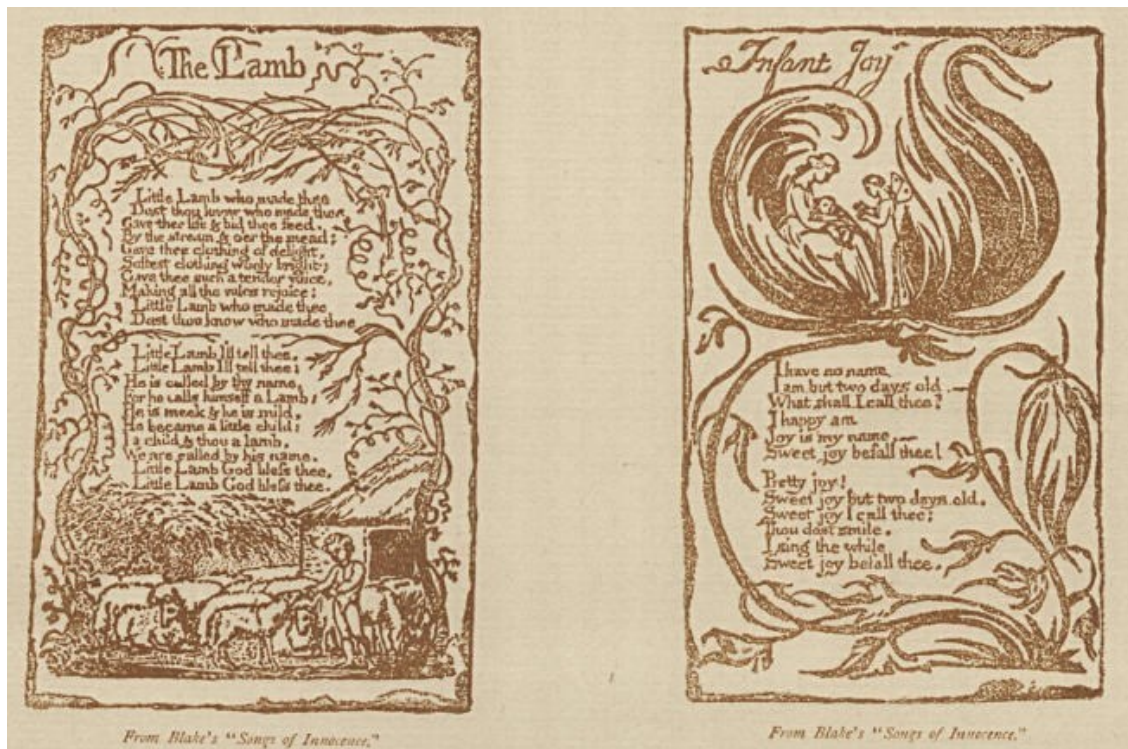 The Lamb
Little Lamb who made thee
Dost thou know who made thee
Gave thee life & bid thee feed.
By the stream & oer the mead;
Gave thee clothing of delight,
Softest clothing wooly bright;
Gave thee such a tender voice,
Making all the vales rejoice;
Little Lamb who made thee
Dost thou know who made thee
Little Lamb I'll tell thee,
Little Lamb I'll tell thee;
He is called by thy name,
For he calls himself a Lamb:
He is meek & he is mild,
He became a little child;
I a child & thou a lamb,
We are called by his name.
Little Lamb God bless thee.
Little Lamb God bless thee.
From Blake's "Songs of Innocence."
Infant Joy
I have no name
I am but two days old.—
What shall I call thee?
I happy am
Joy is my name,—
Sweet joy befall thee!
Pretty joy!
Sweet joy but two days old.
Sweet joy I call thee;
Thou dost smile.
I sing the while
Sweet joy befall thee.
From Blake's "Songs of Innocence."